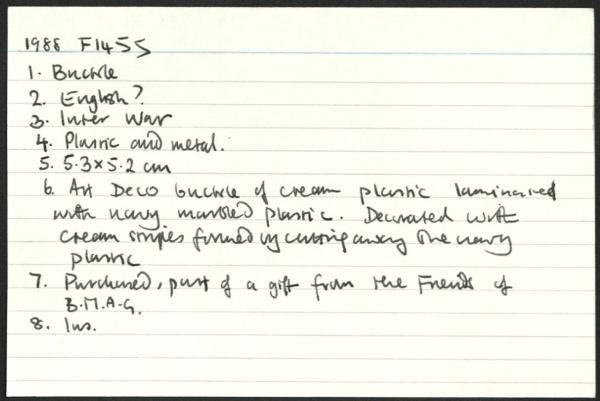 1988 F1455
1. Buckle
2. English?
3. Inter War
4. Plastic and metal.
5. 5.3 x 5.2 cm
6. Art Deco buckle of cream plastic laminated
with navy marbled plastic. Decorated with
cream stripes formed by cutting away the navy
plastic
7. Purchased, part of a gift from the Friends of
B.M.A.G.
8. Ins.